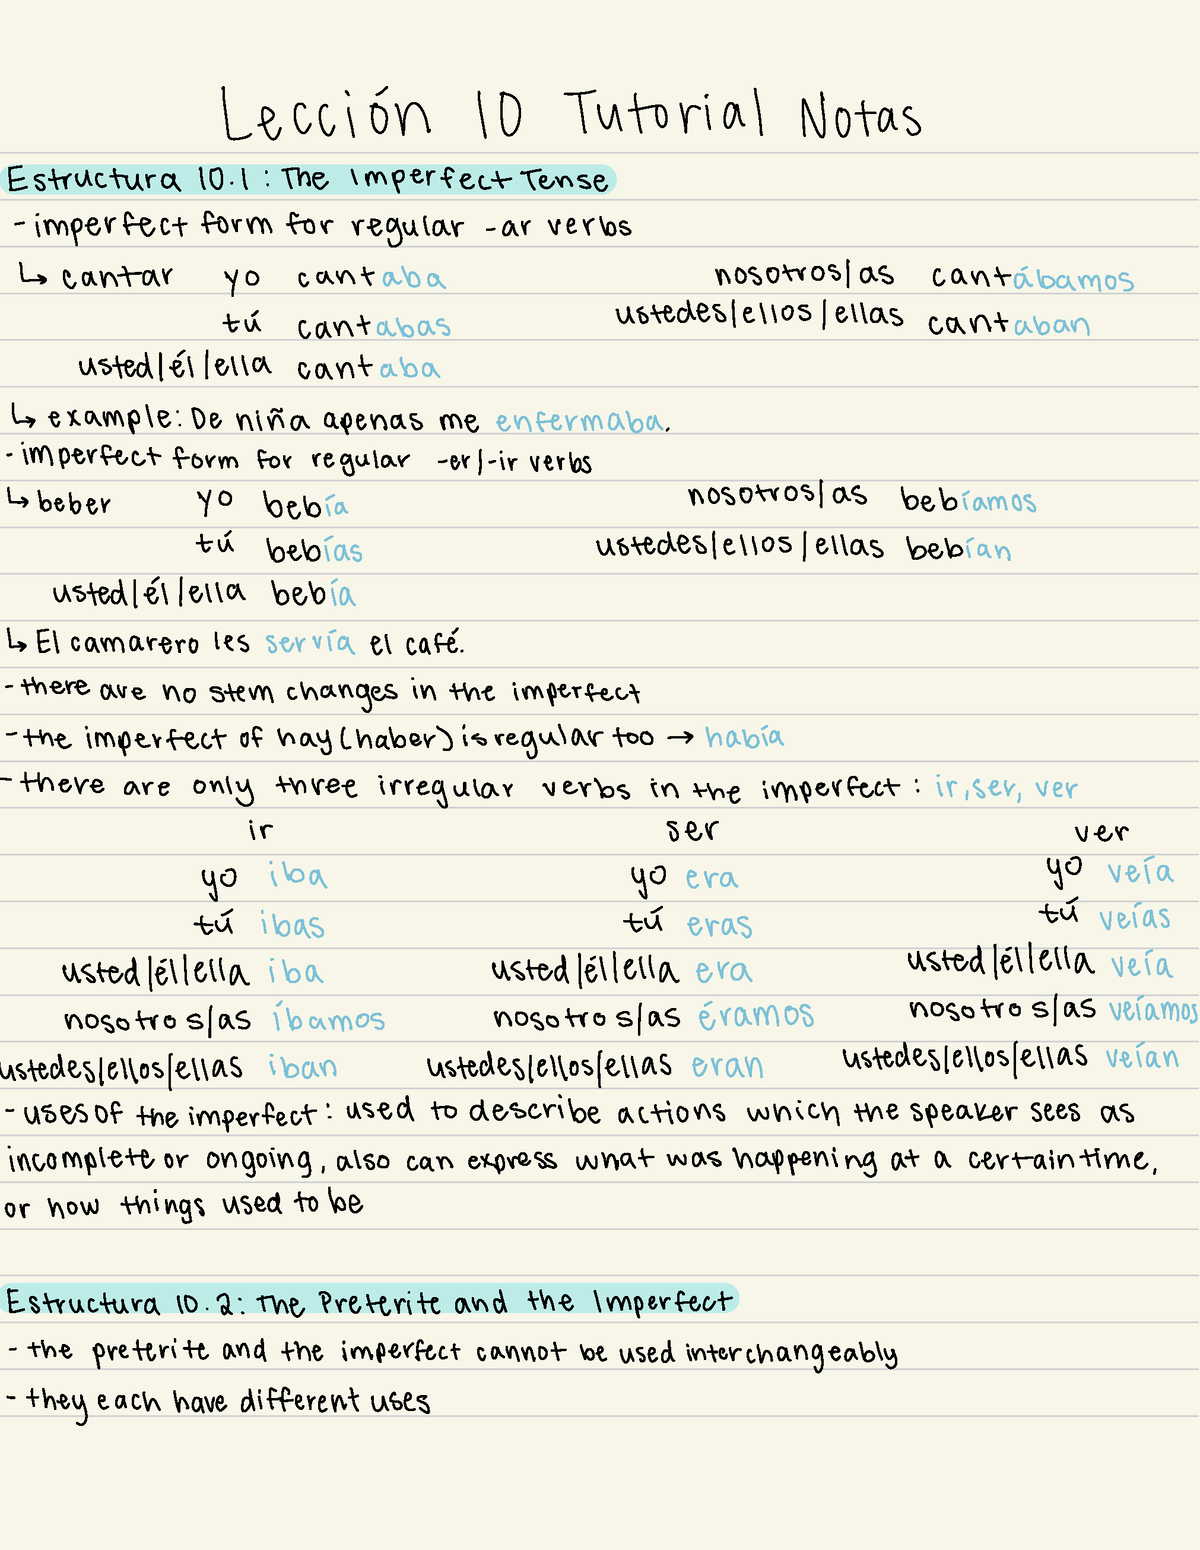 Lección 10 Tutorial Notas
Estructura 10.1: The Imperfect Tense
- imperfect form for regular -ar verbs
↳ cantar yo cantaba nosotros/as cantábamos
tú cantabas ustedes/ellos/ellas cantaban
usted/él/ella cantaba
↳ example: De niña apenas me enfermaba.
- imperfect form for regular -er/-ir verbs
↳ beber yo bebía nosotros/as bebíamos
tú bebías ustedes/ellos/ellas bebían
usted/él/ella bebía
↳ El camarero les servía el café.
- there are no stem changes in the imperfect
- the imperfect of hay (haber) is regular too → había
- there are only three irregular verbs in the imperfect: ir, ser, ver
ir ser ver
yo iba yo era yo veía
tú ibas tú eras tú veías
usted/él/ella iba usted/él/ella era usted/él/ella veía
nosotros/as íbamos nosotros/as éramos nosotros/as veíamos
ustedes/ellos/ellas iban ustedes/ellos/ellas eran ustedes/ellos/ellas veían
- uses of the imperfect: used to describe actions which the speaker sees as
incomplete or ongoing, also can express what was happening at a certain time,
or how things used to be
Estructura 10.2: The Preterite and the Imperfect
- the preterite and the imperfect cannot be used interchangeably
- they each have different uses